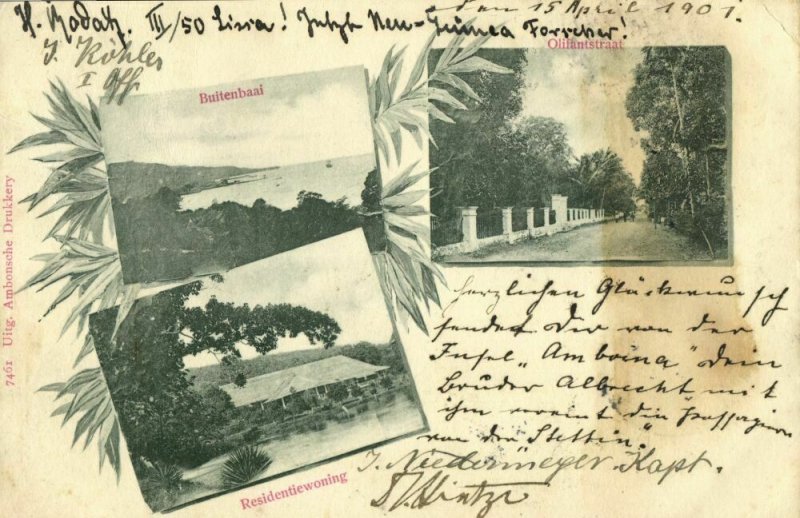 den 15 April 1901.
H. Rodatz. III/50 Lissa! Jetzt Neu-Guinea Forscher!
J. Köhler
I Off
Buitenbaai
Olifantstraat
7461 Uitg. Ambonsche Drukkery
Residentiewoning
herzlichen Glückwunsch
sendet Dir von der
Insel „Amboina“ dein
Bruder Albrecht mit
ihm vereint die Passagiere
von der Stettin.“
Niedermeyer Kapt.